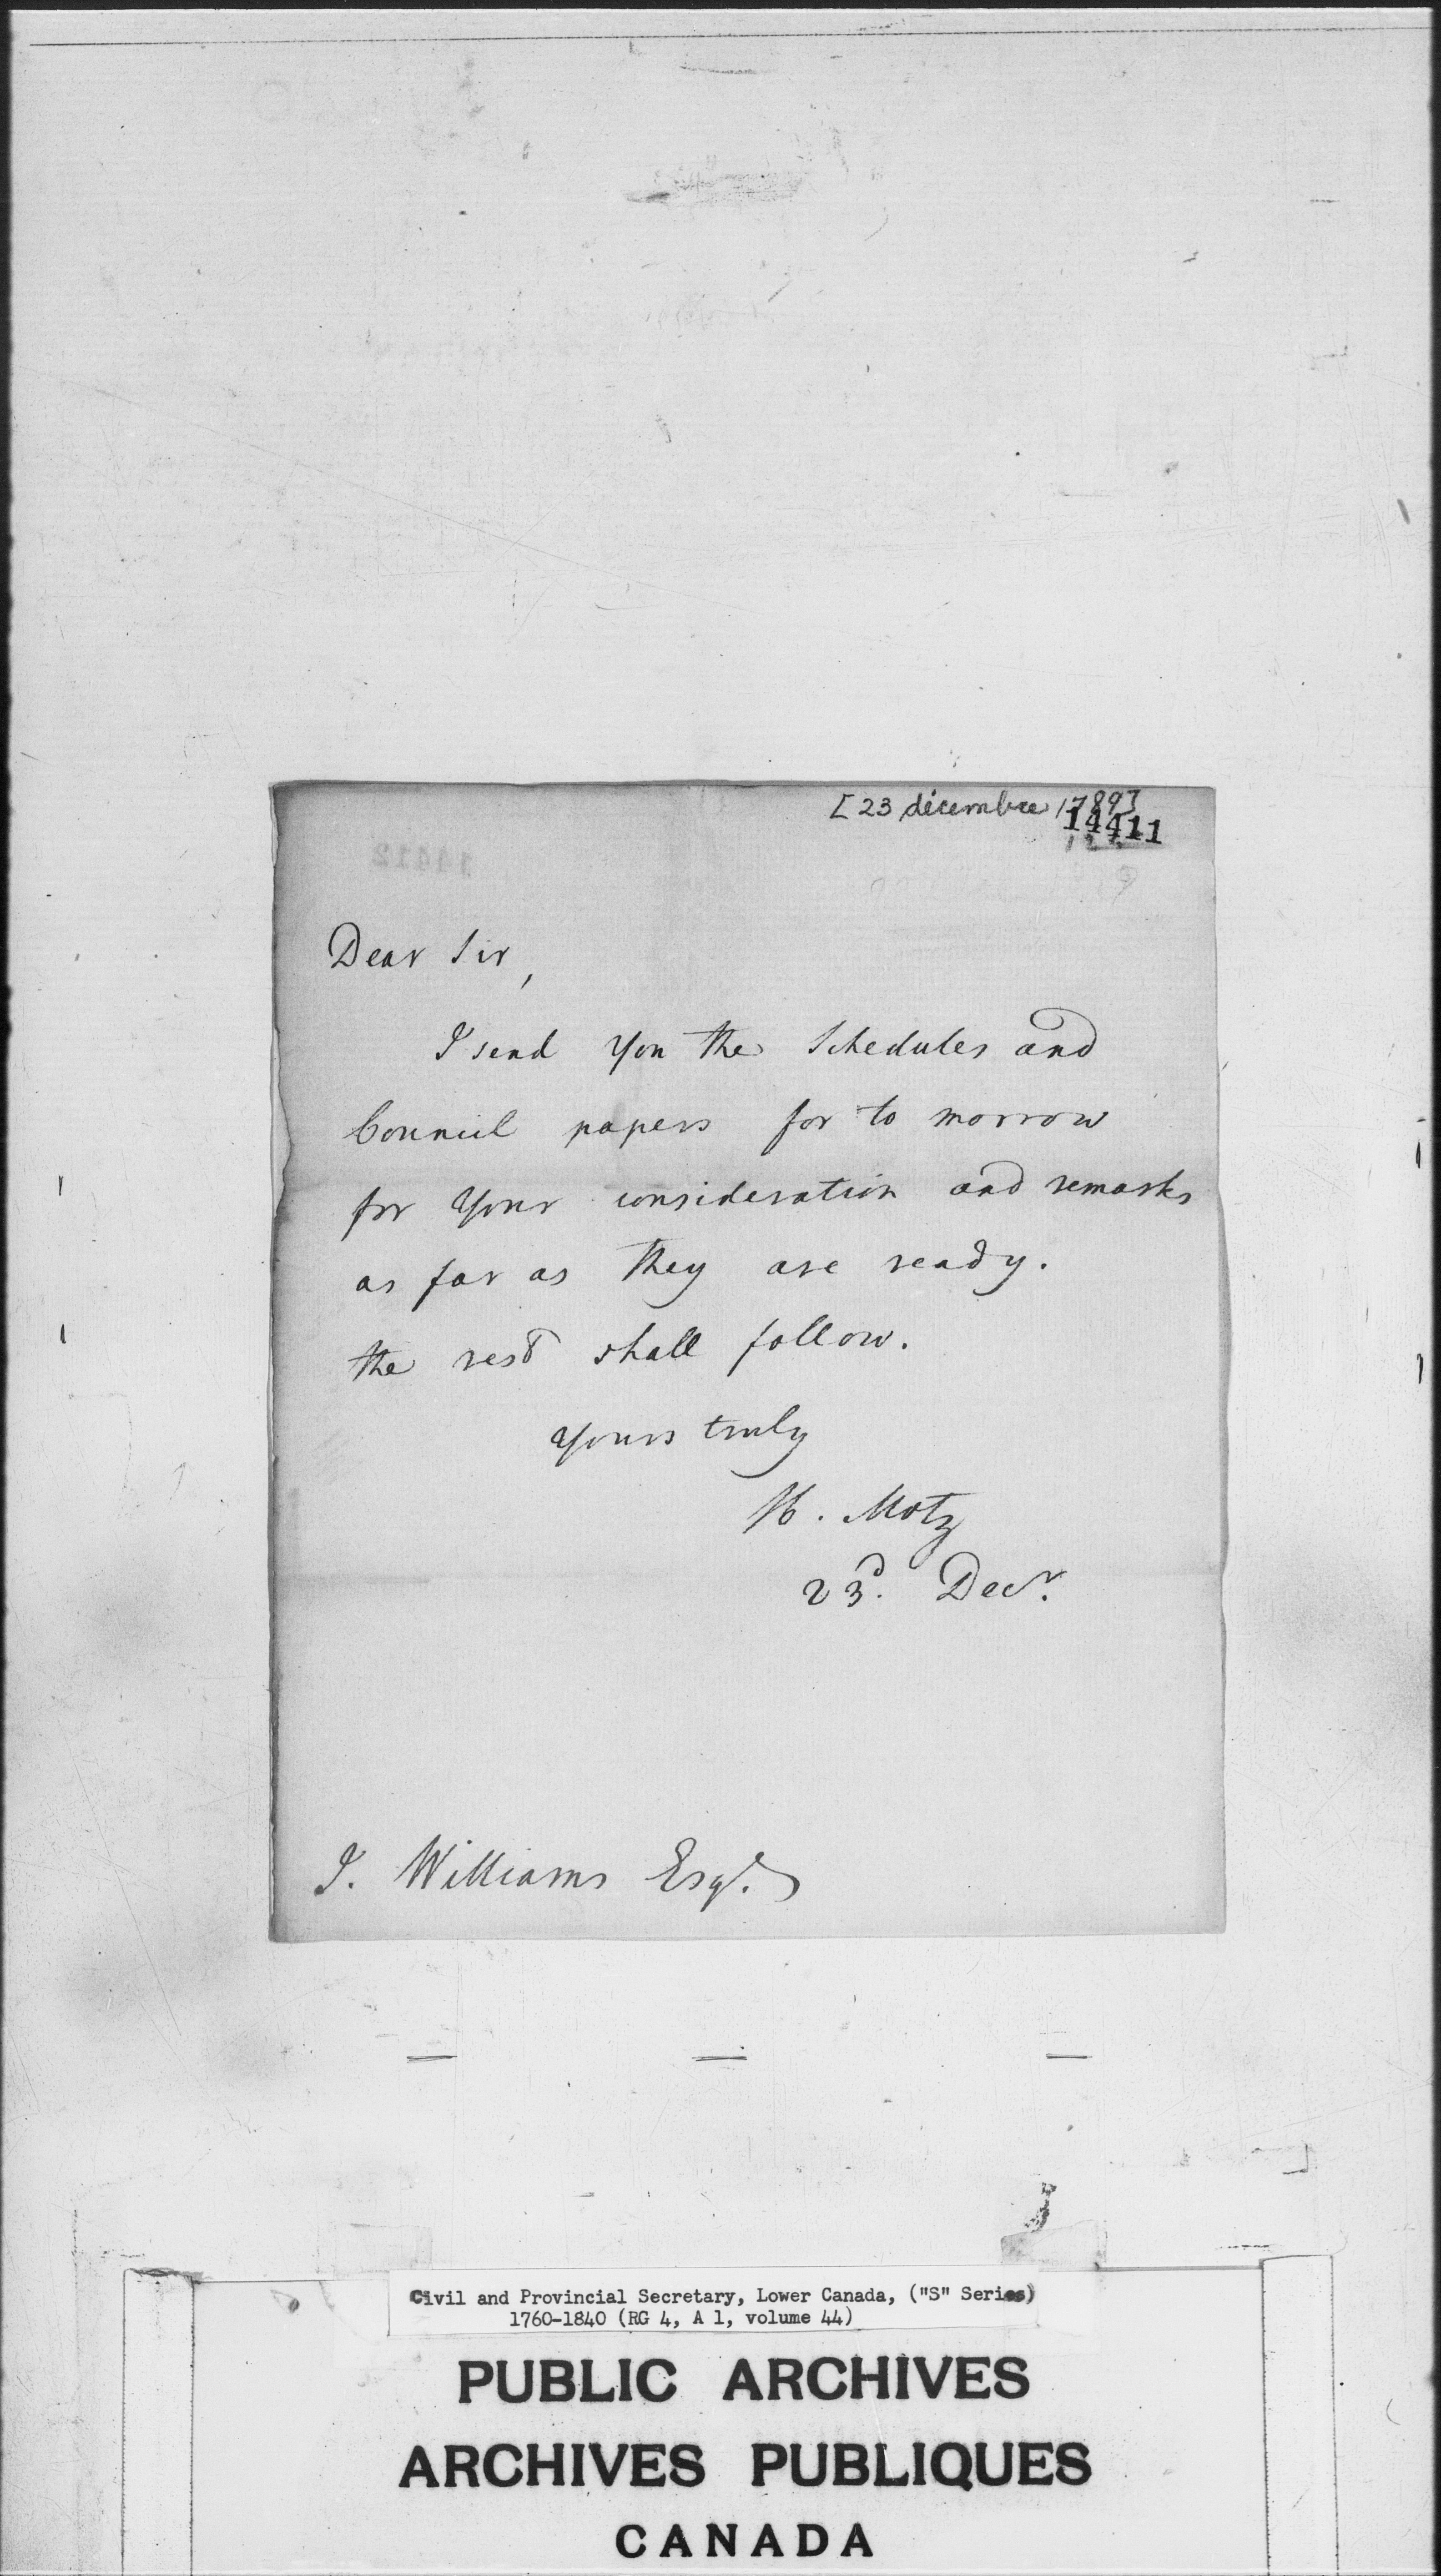 [23 décembre 1789]
14411
Dear Sir,
I send you the Schedules and
Council papers for to morrow
for your consideration and remarks
as far as they are ready.
the rest shall follow.
yours truly
H. Motz
23d. Decr.
J. Williams Esqr.
Civil and Provincial Secretary, Lower Canada, ("S" Series)
1760-1840 (RG 4, A 1, volume 44)
PUBLIC ARCHIVES
ARCHIVES PUBLIQUES
CANADA